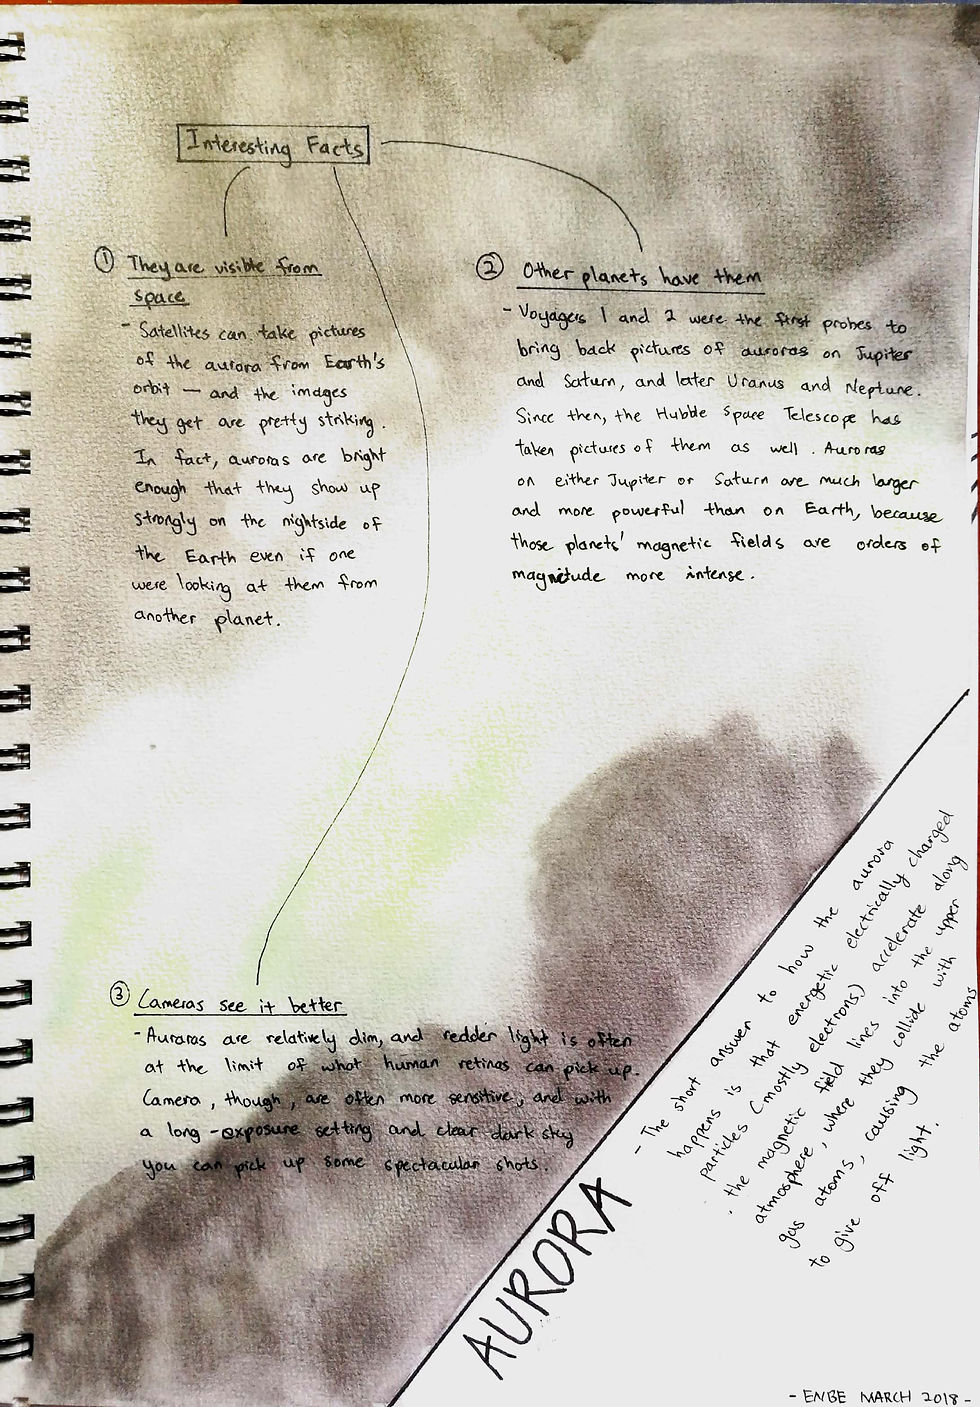 Interesting Facts
① They are visible from
space
- Satellites can take pictures
of the aurora from Earth's
orbit — and the images
they get are pretty striking.
In fact, auroras are bright
enough that they show up
strongly on the nightside of
the Earth even if one
were looking at them from
another planet.
② Other planets have them
- Voyagers 1 and 2 were the first probes to
bring back pictures of auroras on Jupiter
and Saturn, and later Uranus and Neptune.
Since then, the Hubble Space Telescope has
taken pictures of them as well. Auroras
on either Jupiter or Saturn are much larger
and more powerful than on Earth, because
those planets' magnetic fields are orders of
magnitude more intense.
③ Cameras see it better
- Auroras are relatively dim, and redder light is often
at the limit of what human retinas can pick up.
Camera, though, are often more sensitive, and with
a long-exposure setting and clear dark sky
you can pick up some spectacular shots.
AURORA
- The short answer to how the aurora
happens is that energetic electrically charged
particles (mostly electrons) accelerate along
the magnetic field lines into the upper
atmosphere, where they collide with
gas atoms, causing the atoms
to give off light.
- ENBE MARCH 2018 -